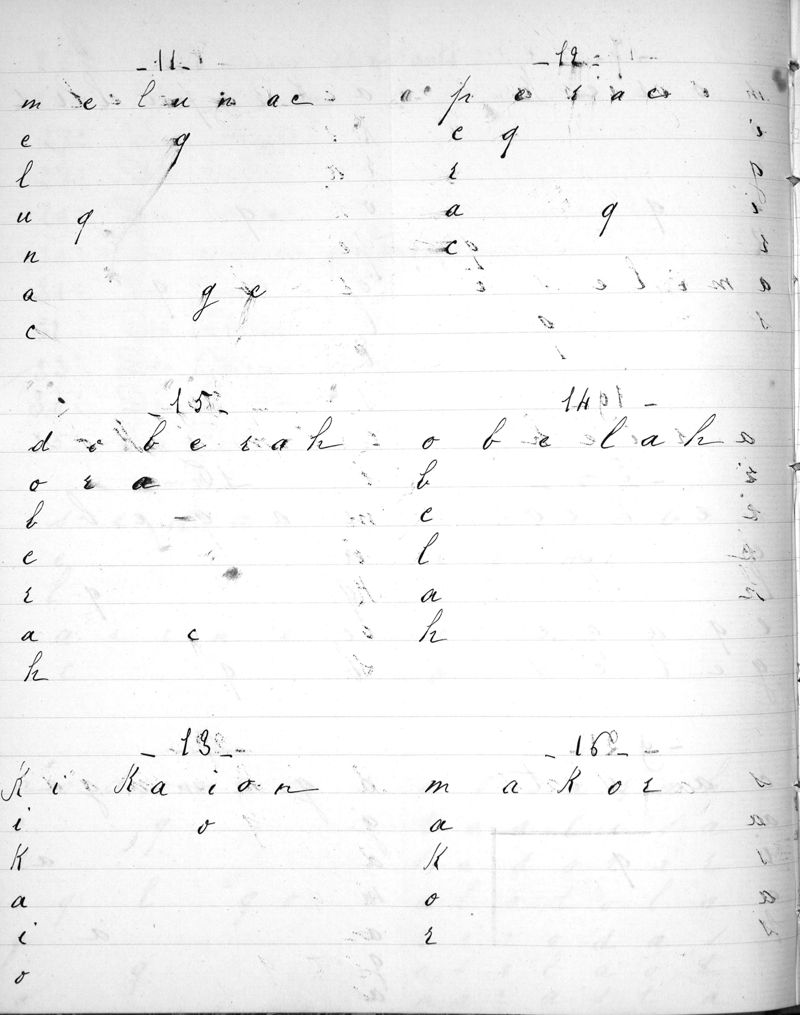 -11-
m e l u n a c
e g
l
u q
n
a g e
c
-12-
p e r a c
e q
r
a q
c
-15-
d o b e r a h
o r a
b
e
r
a c
h
14 -
o b e l a h
b
e
l
a
h
-13-
K i K a i o n
i o
K
a
i
o
-16-
m a K o r
a
K
o
r